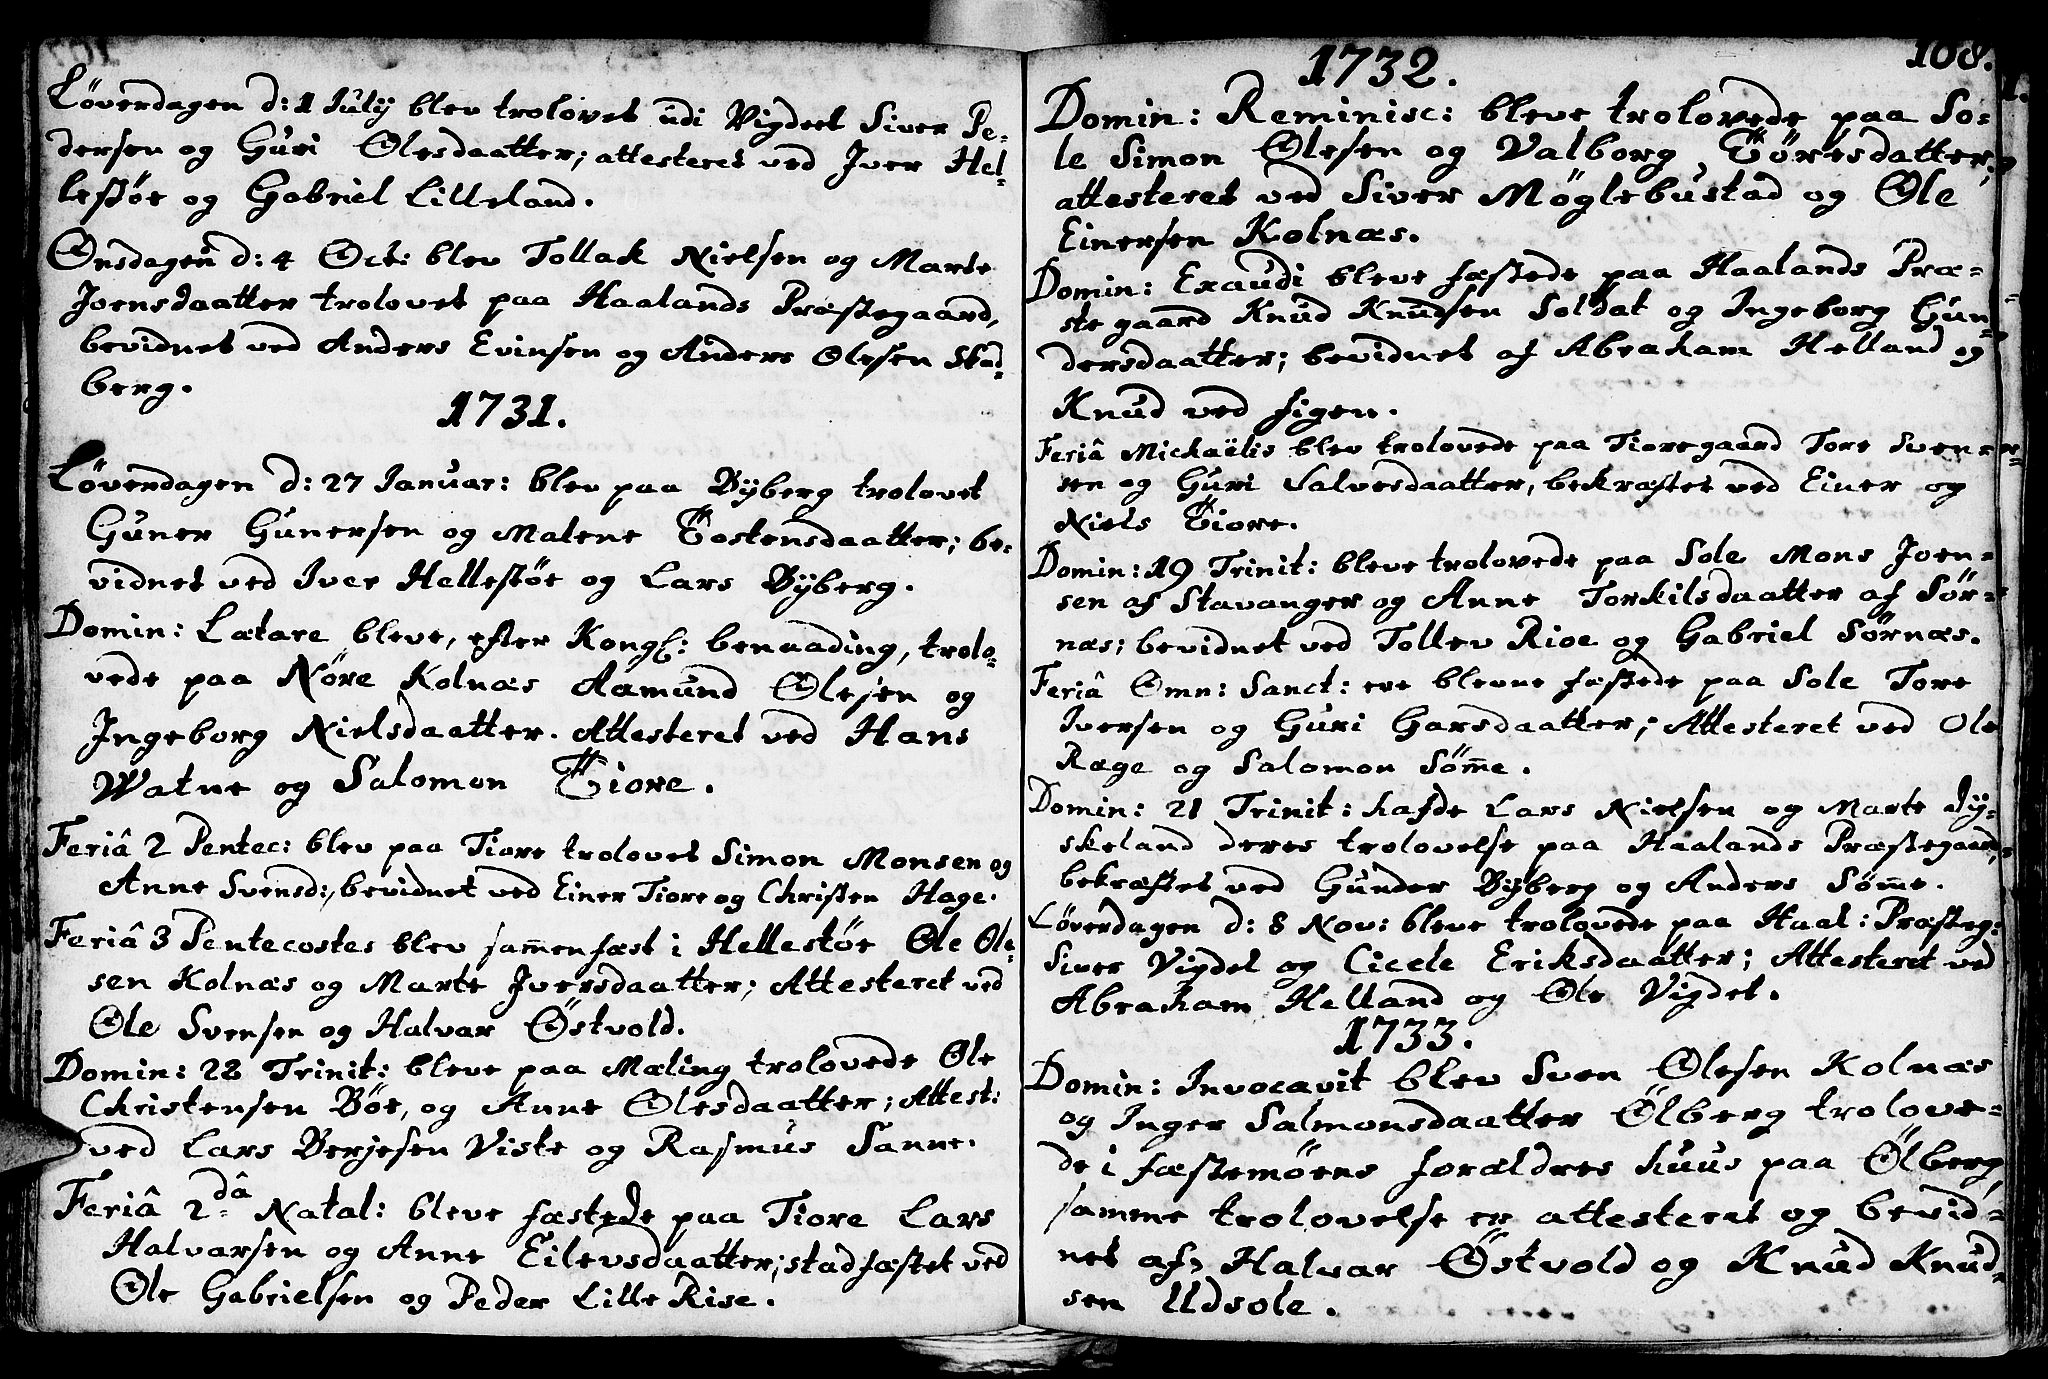 Löverdagen d: 1 Julij blev trolovet udi Vigdeel Siver Pe-
dersen og Guri Olesdaatter; attesteret ved Jver Hel-
lestöe og Gabriel Lilleland.
Onsdagen d: 4 Oct: blev Tollak Nielsen og Marte
Joensdaatter trolovet paa Haalands Præstegaard,
bevidnet ved Anders Evinsen og Anders Olesen Skad-
berg.
1731.
Löverdagen d: 27 Januar: blev paa Byberg trolovet
Guner Gunersen og Malene Tostensdaatter; be-
vidnet ved Iver Hellestöe og Lars Byberg.
Domin: Lætare bleve, efter Kongl: benaading, trolo-
vede paa Nöre Kolnæs Aamund Olesen og
Ingeborg Nielsdaatter. Attesteret ved Hans
Watne og Salomon Tiore.
Feriâ 2 Pentec: blev paa Tiore trolovet Simon Monsen og
Anne Svensd:, bevidnet ved Einer Tiore og Christen Hage.
Feriâ 3 Pentecostes blev sam̃enfæst i Hellestöe Ole Ole-
sen Kolnæs og Marte Jversdaatter; Attesteret ved
Ole Svensen og Halvar Östvold.
Domin: 22 Trinit: bleve paa Mæling trolovede Ole
Christensen Böe, og Anne Olesdaatter; Attest:
ved Lars Berjesen Viste og Rasmus Sanne.
Feriâ 2dâ Natal: bleve fæstede paa Tiore Lars
Halvarsen og Anne Eilevsdaatter; stadfæstet ved
Ole Gabrielsen og Peder Lille Rise.
108.
1732.
Domin: Reminisc: bleve trolovede paa So-
le Simon Olesen og Valborg Töresdatter,
attesteret ved Siver Möglebustad og Ole
Einersen Kolnæs.
Domin: Exaudi bleve fæstede paa Haalands Præ-
stegaard Knud Knudsen Soldat og Ingeborg Gun-
dersdaatter; bevidnet af Abraham Helland og
Knud ved sigen.
Feriâ Michaëlis blev trolovede paa Tioregaard Tore Sven-
sen og Guri Salvesdaatter, bekræftet ved Einer og
Niels Tiore.
Domin: 19 Trinit: bleve trolovede paa Sole Mons Joen-
sen af Stavanger og Anne Torkilsdaatter af Sör-
næs; bevidnet ved Tollev Rioe og Gabriel Sörnæs.
Feriâ Omn: Sanct: ere blevne fæstede paa Sole Tore
Iversen og Guri Garsdaatter; Attesteret ved Ole
Ræge og Salomon Söm̃e.
Domin: 21 Trinit: hafde Lars Nielsen og Marte Dy-
skeland deres trolovelse paa Haalands Præstegaard,
bekræftet ved Gunder Byberg og Anders Söm̃e.
Löverdagen d: 8 Nov: bleve trolovede paa Haal: Præsteg:
Siver Vigdel og Cicele Eriksdaatter; Attesteret ved
Abraham Helland og Ole Vigdel.
1733.
Domin: Invocavit blev Sven Olesen Kolnæs
og Inger Salmonsdaatter Ölberg trolove-
de i fæstemöens forældres huus paa Ölberg,
samme trolovelse er attesteret og bevid-
net af Halvar Östvold og Knud Knud-
sen Udsole.